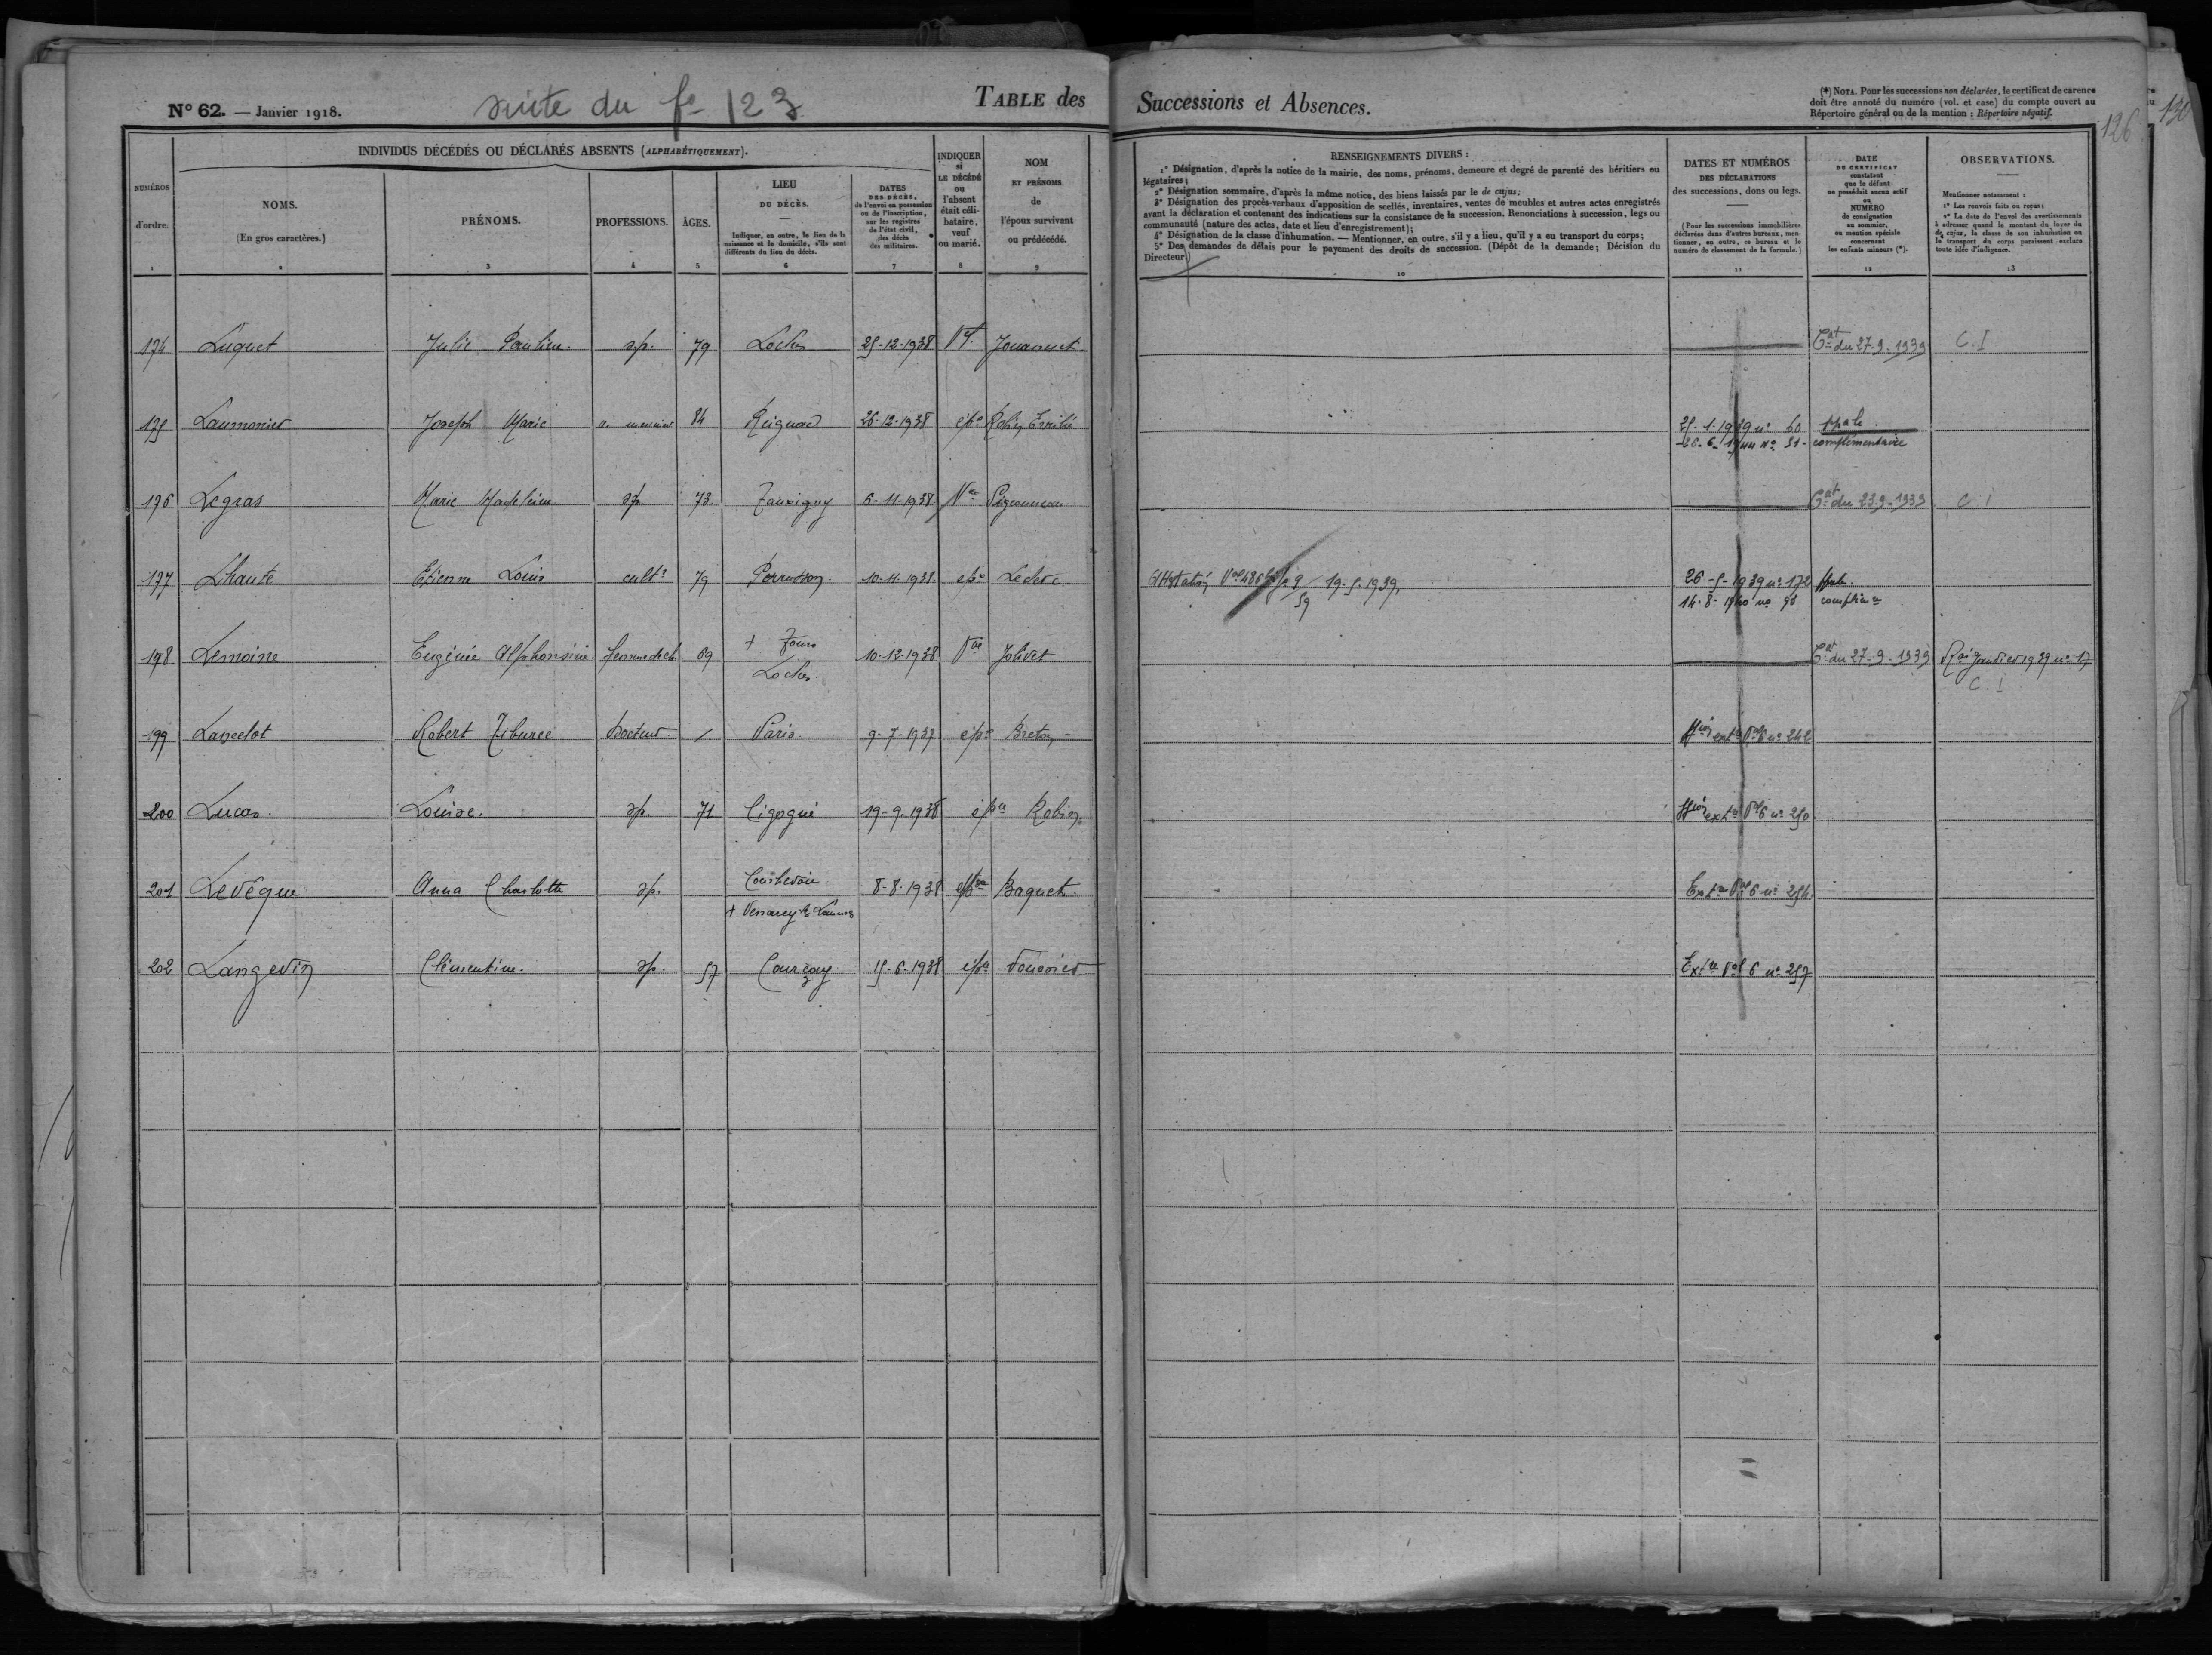 N° 62. — Janvier 1918.
suite du f° 123
TABLE des
Successions et Absences.
(*) NOTA. Pour les successions non déclarées, le certificat de carence
doit être annoté du numéro (vol. et case) du compte ouvert au
Répertoire général ou de la mention : Répertoire négatif.
126
130
INDIVIDUS DÉCÉDÉS OU DÉCLARÉS ABSENTS (ALPHABÉTIQUEMENT).
NUMÉROS
d'ordre.
1
NOMS.
(En gros caractères.)
2
PRÉNOMS.
3
PROFESSIONS.
4
ÂGES.
5
LIEU
DU DÉCÈS.
—
Indiquer, en outre, le lieu de la
naissance et le domicile, s'ils sont
différents du lieu du décès.
6
DATES
DES DÉCÈS,
de l'envoi en possession
ou de l'inscription,
sur les registres
de l'état civil,
des décès
des militaires.
7
INDIQUER
si
LE DÉCÉDÉ
ou
l'absent
était céli-
bataire,
veuf
ou marié.
8
NOM
ET PRÉNOMS
de
l'époux survivant
ou prédécédé.
9
RENSEIGNEMENTS DIVERS :
1° Désignation, d'après la notice de la mairie, des noms, prénoms, demeure et degré de parenté des héritiers ou
légataires;
2° Désignation sommaire, d'après la même notice, des biens laissés par le de cujus;
3° Désignation des procès-verbaux d'apposition de scellés, inventaires, ventes de meubles et autres actes enregistrés
avant la déclaration et contenant des indications sur la consistance de la succession. Renonciations à succession, legs ou
communauté (nature des actes, date et lieu d'enregistrement);
4° Désignation de la classe d'inhumation. — Mentionner, en outre, s'il y a lieu, qu'il y a eu transport du corps;
5° Des demandes de délais pour le payement des droits de succession. (Dépôt de la demande; Décision du
Directeur.)
10
DATES ET NUMÉROS
DES DÉCLARATIONS
des successions, dons ou legs.
—
(Pour les successions immobilières
déclarées dans d'autres bureaux, men-
tionner, en outre, ce bureau et le
numéro de classement de la formule.)
11
DATE
DU CERTIFICAT
constatant
que le défunt
ne possédait aucun actif
ou
NUMÉRO
de consignation
au sommier,
ou mention spéciale
concernant
les enfants mineurs (*).
12
OBSERVATIONS.
—
Mentionner notamment :
1° Les renvois faits ou reçus;
2° La date de l'envoi des avertissements
à adresser quand le montant du loyer du
de cujus, la classe de son inhumation ou
le transport du corps paraissent exclure
toute idée d'indigence.
13
174 Luquet Julie Pauline. sp. 79 Loches 25-12-1938 Jouannet Cat du 27-9-1939 C. I
175 Laumonier Joseph Marie a. meunier 84 Reignac 26-12-1938 épx Robin Emilie 25-1-1939 n° 60 ppale
26-6-1944 n° 51 - complémentaire
176 Legras Marie Madeleine sp. 73 Tauxigny 6-11-1938 Vve Pigeonneau Cat du 23-9-1939 C I
177 Lhaute Etienne Louis cultr 79 Perrusson. 10-11-1938 épx Leclerc Attestation 19-5-1939. 26-5-1939 n° 172 ppale.
14-8-1940 n° 98
198 Lemoine Eugénie Alphonsine femme de ch. 69 + Tours
Loches. 10-12-1938 Vve Jolivet Cat du 27-9-1939 Janvier 1939 n° 17
C. I
199 Lancelot Robert Tiburce Docteur. / Paris. 9-7-1937 épx Breton Vol 6 n° 242
200 Lucas. Louise. sp. 71 Cigogné 19-9-1938 épse Robin. extre Vol 6 n° 250
201 Levêque Anna Charlotte sp. Courbevoie
+ Venarey les Laumes 8-8-1938 épse Baquet. Extre Vol 6 n° 254
202 Langevin Clémentine. sp. 57 Courçay 15-6-1938 épse Vouvier Extre Vol 6 n° 257